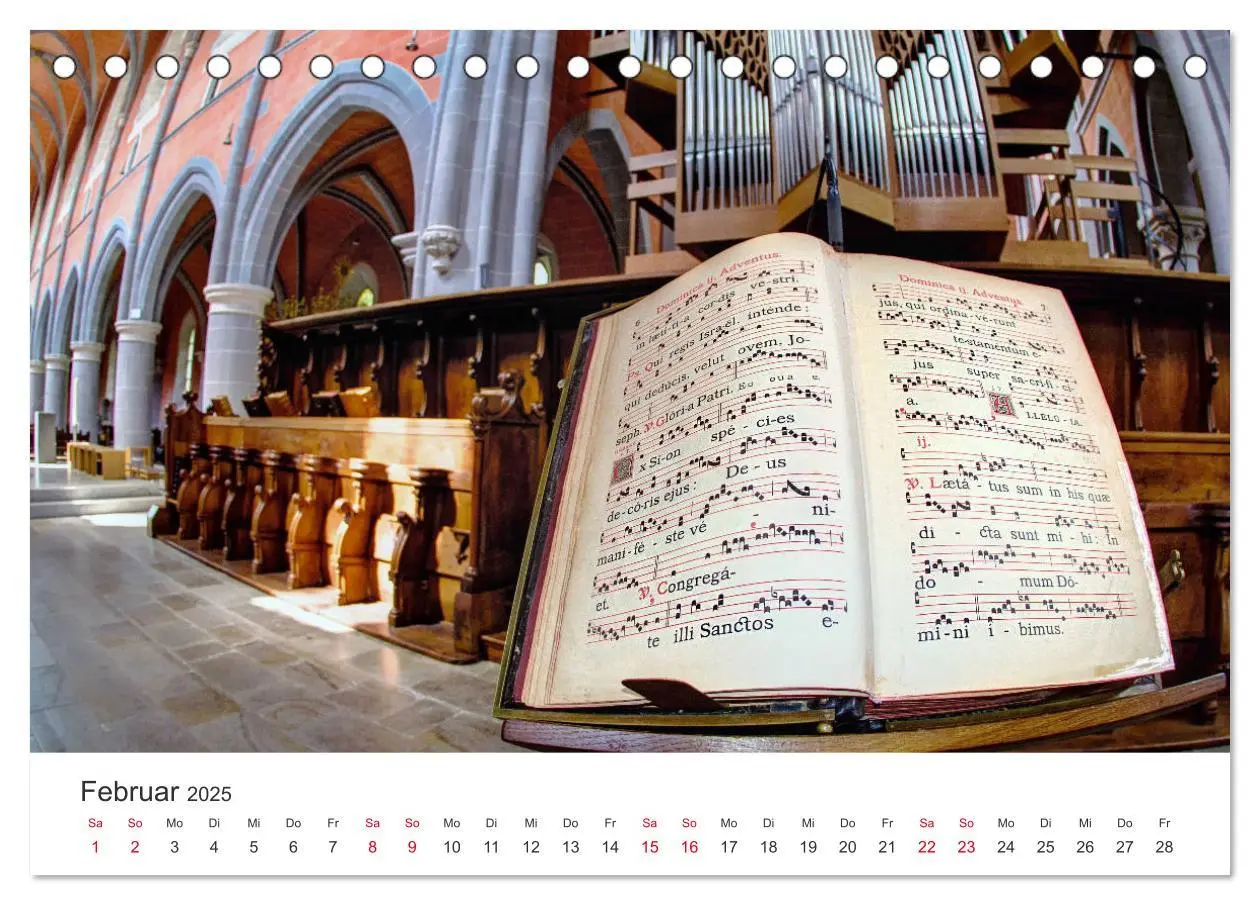 6 Dominica ij. Adventus.
in læti-ti-a cor-dis ve-stri.
Ps. Qui regis Israël, intende :
qui deducis, velut ovem, Jo-
seph. ℣. Glória Patri. E u o u a e.
x Si-on spé - ci-es
de-có-ris ejus : De - us
mani-fé - ste vé - ni-
et. ℣. Congregá-
te illi Sanctos e-
Dominica ij. Adventus. 7
jus, qui ordina-vé-runt
te-stamentum e-
jus super sa-cri-fí-ci-
a. A LLELÚ - IA.
ij.
℣. Lætá - tus sum in his quæ
di - cta sunt mi - hi : In
do - mum Dó-
mi-ni í - bimus.
Februar 2025
Sa So Mo Di Mi Do Fr Sa So Mo Di Mi Do Fr Sa So Mo Di Mi Do Fr Sa So Mo Di Mi Do Fr
1 2 3 4 5 6 7 8 9 10 11 12 13 14 15 16 17 18 19 20 21 22 23 24 25 26 27 28